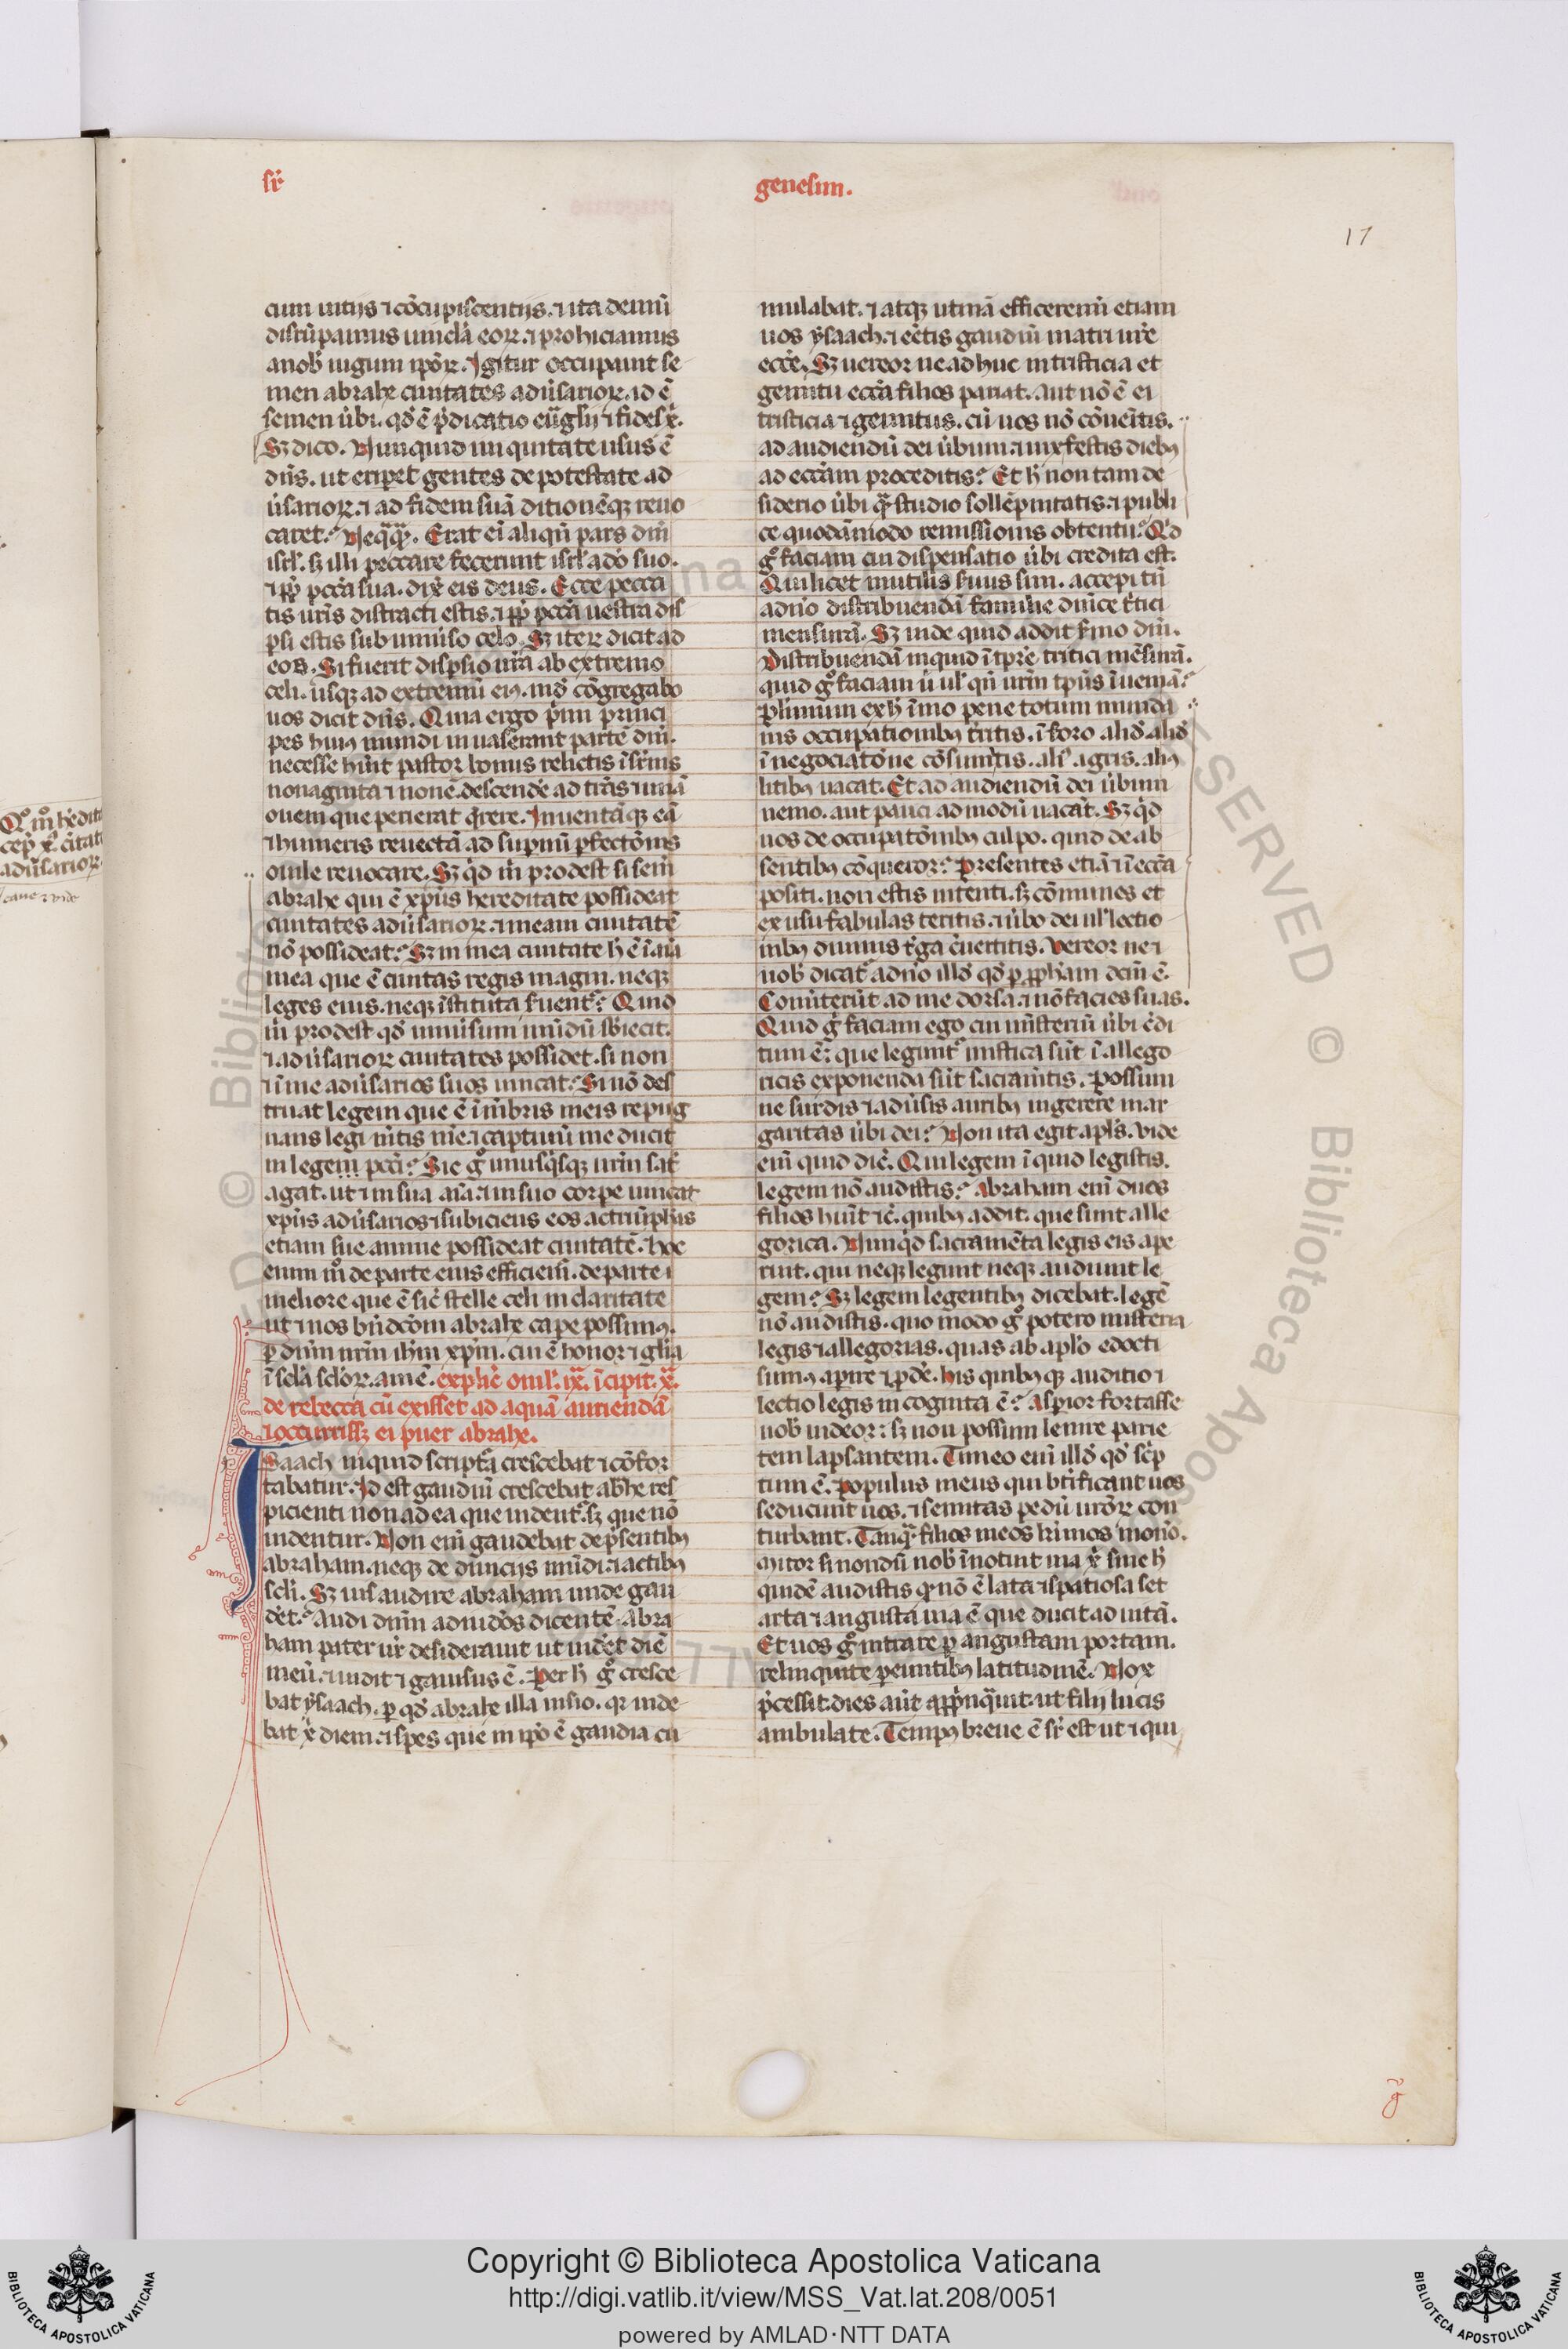 sr̄
genesim.
17
cum uitijs ⁊ ↄ̄cupiscentijs. ⁊ ita demū
disrūpamus uincl̄a eoꝝ. ⁊ prohiciamus
a nob̄ iugum ip̄oꝝ. Igitur occupauit se
men abrahe ciuitates adūsarioꝝ. id ē
semen ūbi. qđ ē p̄dicatio euꝰglij ⁊ fidei x̄.
Sꝫ dico. Nunquid iniquitate usus ē
dn̄s. ut eriperet gentes de potestate ad
ūsarioꝝ. ⁊ ad fidem suā ditionēqꝫ reuo
caret? Neq̄q̄. Erat eī aliqn̄ pars dn̄i
isrl̄. sꝫ illi peccare fecerunt isrl̄ a dō suo.
⁊ ꝓp̄ pcc̄a sua. dix̄ eis deus. Ecce pecca
tis ur̄is distracti estis. ⁊ ꝓp̄ pcc̄a uestra dis
ꝑsi estis sub uniūso celo. Sꝫ iteꝝ dicit ad
eos. Si fuerit disꝑsio ur̄a ab extremo
celi. usqꝫ ad extremū eiꝰ. īnđ cōgregabo
uos dicit dn̄s. Quia ergo p̄mi princi
pes huiꝰ mundi inuaserant partē dn̄i.
necesse hūit pastor bonus relictis ī sr̄nis
nonaginta ⁊ nouē. descende ad tr̄as ⁊ unā
ouem que perierat q̄rere. Inuentāqꝫ eā
⁊ humeris reuectā ad suꝑnū ꝑfectōnis
ouile reuocare. Sꝫ qđ m̄ prodest si sem̄
abrahe qui ē xp̄us hereditate possideat
ciuitates adūsarioꝝ. ⁊ meam ciuitatē
nō possideat? Sꝫ in mea ciuitate h̄ ē ī aīa
mea que ē ciuitas regis magni. neqꝫ
leges eius. neqꝫ īstituta fuent? Quid
m̄ prodest qđ uniūsum mūdū sb̄iecit.
⁊ adūsarioꝝ ciuitates possidet. si non
⁊ ī me adūsarios suos uincat? Si nō des
truat legem que ē ī mēbris meis repug
nans legi mn̄tis me. ⁊ captiuū me ducit
in legem pcc̄i? Sic gͦ unusq̄sqꝫ nr̄m sat̄
agat. ut ⁊ in sua aīa ⁊ in suo corpe uincat
xp̄us adūsarios ⁊ subiciens eos ac triūphās
etiam sue anime possideat ciuitatē. Hoc
enim mͦ de parte eius efficiem̄. de parte
meliore que ē sic̄ stelle celi in claritate
ut ⁊ nos bn̄dcōm abrahe capere possimꝰ.
ꝑ dn̄m nr̄m ih̄m xpm̄. cui ē honor ⁊ gl̄ia
ī scl̄a scl̄oꝝ. amē. explic̄ omel̄. ix. īcipit. x.
de rebecca cū exisset ad aquā auriendā
⁊ occurrissꝫ ei puer abrahe.
Isaach inquid scriptā crescebat ⁊ cōfor
tabatur. Id est gaudiū crescebat abr̄he res
picienti non ad ea que uident̄. sꝫ que nō
uidentur. Non enī gaudebat de p̄sentibꝰ
abraham. neqꝫ de diuicijs mūdi. ⁊ actibꝰ
scl̄i. Sꝫ uis audire abraham unde gau
det? Audi dn̄m ad iudōs dicentē. Abra
ham pater ur̄ desiderauit ut uidēt diē
meū. ⁊ uidit ⁊ gauisus ē. Per h̄ gͦ cresce
bat ysaach. ꝑ qđ abrahe illa uisio. qꝛ uide
bat x̄ diem. ⁊ spes que in ip̄o ē gaudia cu
mulabat. ⁊ atqꝫ utinā efficeremī etiam
uos ysaach. ⁊ eētis gaudiū matri ur̄e
ecc̄e. Sꝫ uereor ne adhuc in tristicia et
gemitu ecc̄a filios pariat. Aut nō ē ei
tristicia ⁊ gemitus. cū uos nō cōuēitis.
ad audiendū dei ūbum. ⁊ uix festis diebꝰ
ad ecc̄am proceditis? Et h̄ non tam de
siderio ūbi q̄ studio sollēpnitatis. ⁊ publi
ce quodāmodo remissionis obtentu? Qđ
gͦ faciam cui dispensatio ūbi credita est.
Qui licet inutilis s̄uus sim. accepi tn̄
a dn̄o distribuendā familie dn̄ice t̄tici
mensurā. Sꝫ uide quid addit s̄mo dn̄i.
Distribuendā inquid ī tpr̄e tritici mēsurā.
quid gͦ faciam ū ul̄ qn̄ urm̄ tp̄us īueniā?
Plimum ex h̄ īmo pene totum munda
nis occupationibꝰ t̄ritis. ī foro aliđ. aliđ
ī negociatōne cōsumitis. al̄s agris. aliꝰ
litibꝰ uacat. Et ad audiendū dei ūbum
nemo. aut pauci ad modū uacāt. Sꝫ qđ
uos de occupatōnibꝰ culpo. quid de ab
sentibꝰ cōqueror? Presentes etiā ⁊ ī ecc̄a
positi. non estis intenti. sꝫ cōmunes et
ex usu fabulas teritis. ⁊ ūbo dei ul̄ lectio
nibꝰ diuinis t̄ga cūertitis. Vereor ne ⁊
uob̄ dicat̄ a dn̄o illđ qđ ꝑ ꝓph̄am dcm̄ ē.
Conūterūt ad me dorsa. ⁊ nō facies suas.
Quid gͦ faciam ego cui mīsteriū ūbi c̄di
tum ē: que legunt̄ mistica sūt ī allego
ricis exponenda sūt sacram̄tis. Possum
ne surdis ⁊ adūsis auribꝰ ingerere mar
garitas ūbi dei? Non ita egit apl̄s. Vide
enī quid dic̄. Qui legem ī quid legistis.
legem nō audistis? Abraham enī duos
filios huīt ⁊c̄. quibꝰ addit. que sunt alle
gorica. Nunqđ sacramēta legis eis ape
riut. qui neqꝫ legunt neqꝫ audiunt le
gem? Sꝫ legem legentibꝰ dicebat. legē
nō audistis. quo modo gͦ potero misteria
legis ⁊ allegorias. quas ab apl̄o edocti
sumꝰ aꝑire ⁊ ꝓde. his quibꝰqꝫ auditio ⁊
lectio legis incognita ē? Asꝑior fortasse
uob̄ uideor: sꝫ non possum lenire parie
tem lapsantem. Timeo enī illđ qđ sc̄p
tum ē. Populus meus qui bt̄ificant uos
seducunt uos. ⁊ semitas pedū uroꝝ con
turbant. Tanq̄ filios meos kr̄mos mono.
Mitor si nondū nob̄ īnotuit uia x̄ siue h̄
quidē audistis q̄ nō ē lata ⁊ spatiosa set
arta ⁊ angusta uia ē que ducit ad uitā.
Et uos gͦ intrate ꝑ angustam portam.
relinquite ꝑeuntibꝰ latitudinē. Nox
p̄cessit. dies aūt aꝓpīnq̄uit. ut filij lucis
ambulate. Tempꝰ breue ē sr̄ est ut ⁊ qui
Copyright © Biblioteca Apostolica Vaticana
http://digi.vatlib.it/view/MSS_Vat.lat.208/0051
powered by AMLAD·NTT DATA
BIBLIOTECA APOSTOLICA VATICANA
BIBLIOTECA APOSTOLICA VATICANA